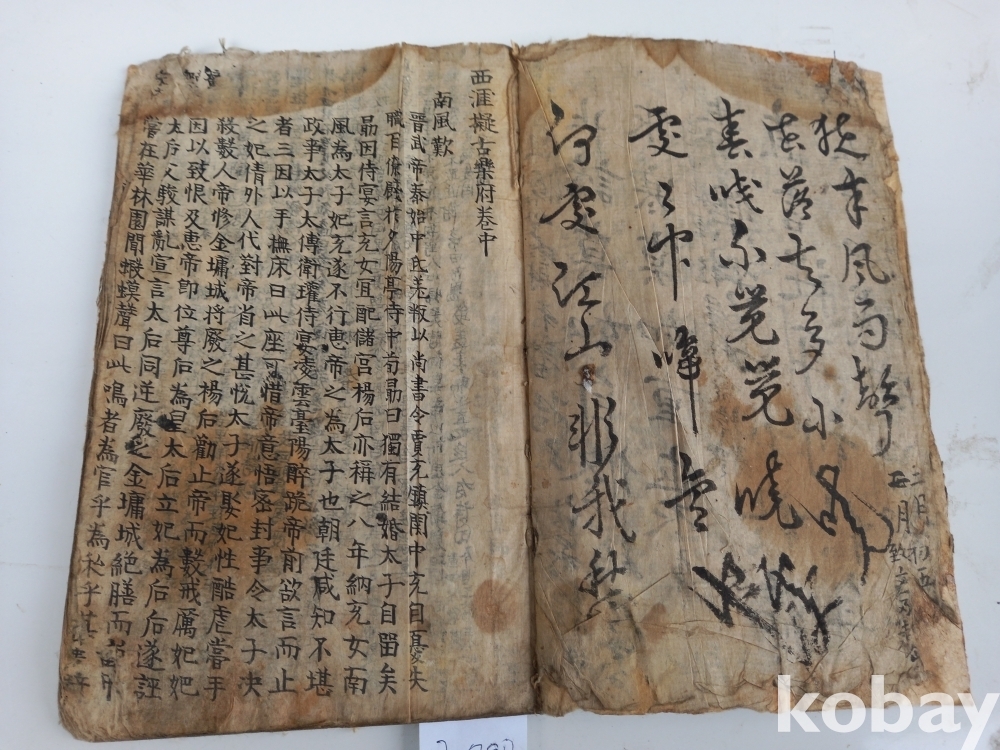 夜來風雨聲
花落知多小
春眠不覺覺曉
處〃中啼鳥
何處江山非我愁
西涯擬古樂府卷中
南風歎
晉武帝泰始中氐羌叛以尚書令賈充鎮關中充自憂失
職百僚餞於夕陽亭侍中荀勗曰獨有結婚太子自留矣
勗因侍宴言充女宜配儲宮楊后亦稱之八年納充女南
風為太子妃充遂不行惠帝之為太子也朝廷咸知不堪
政事太子太傅衛瓘侍宴凌雲臺陽醉跪帝前欲言而止
者三因以手撫床曰此座可惜帝意悟密封事令太子决
之妃倩外人代對帝省之甚悅太子遂娶妃性酷虐嘗手
殺數人帝修金墉城将廢之楊后勸止帝而數戒厲妃妃
因以致恨及惠帝即位尊后為皇太后立妃為后后遂誣
太后父駿謀亂宣言太后同逆廢之金墉城絶膳而
嘗在華林園聞蝦蟆聲曰此鳴者為官乎為私乎其
kobay